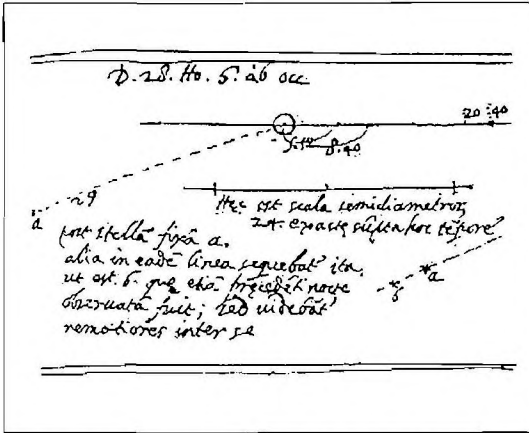 D. 28. Ho. 6. ab occ.
20 40
5.12 8.40
29
a
Hęc est scala semidiametror̃
24. exacte sũpta hoc tẽpore
post stellã fixã a.
alia in eadẽ linea sequebat̃ ita,
ut est b. quę etiã pręcedẽti nocte
obseruata fuit; sed uidebãt̃
remotiores inter se
b a